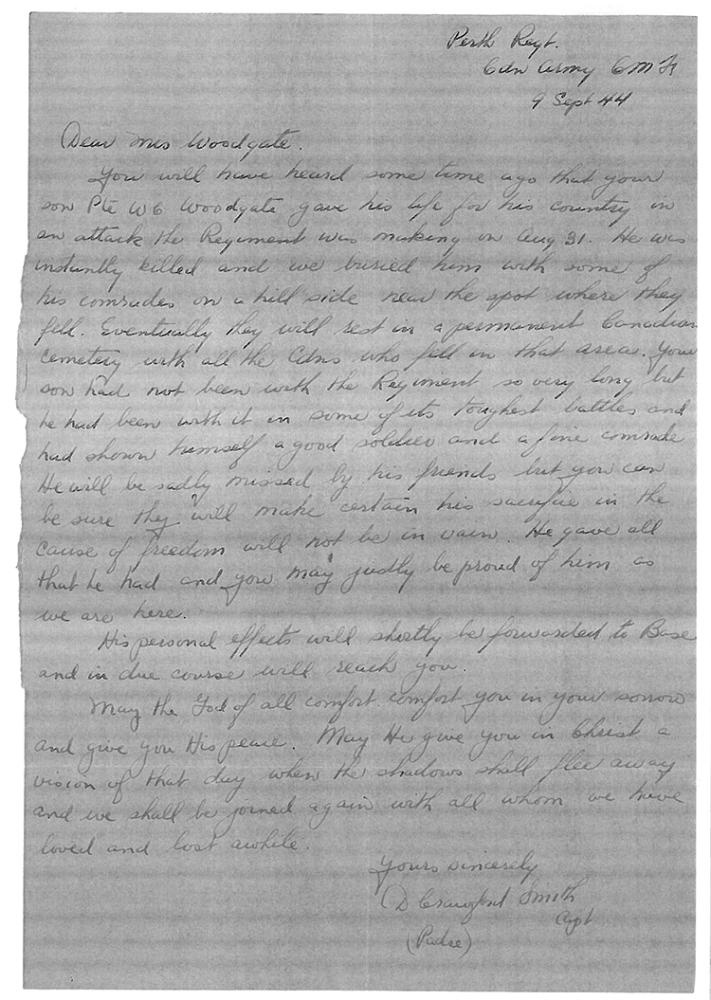 Perth Regt.
Cdn Army CMF
9 Sept 44
Dear Mrs Woodgate.
You will have heard some time ago that your
son Pte WG Woodgate gave his life for his country in
an attack the Regiment was making on Aug 31. He was
instantly killed and we buried him with some of
his comrades on a hill side near the spot where they
fell. Eventually they will rest in a permanent Canadian
cemetery with all the Cdns who fell in that area. Your
son had not been with the Regiment so very long but
he had been with it in some of its toughest battles and
had shown himself a good soldier and a fine comrade
He will be sadly missed by his friends but you can
be sure they will make certain his sacrifice in the
cause of freedom will not be in vain. He gave all
that he had and you may justly be proud of him as
we are here.
His personal effects will shortly be forwarded to Base
and in due course will reach you.
May the God of all comfort comfort you in your sorrow
and give you His peace. May He give you in Christ a
vision of that day when the shadows shall flee away
and we shall be joined again with all whom we have
loved and lost awhile.
Yours sincerely
D Crawford Smith
Capt
(Padre)